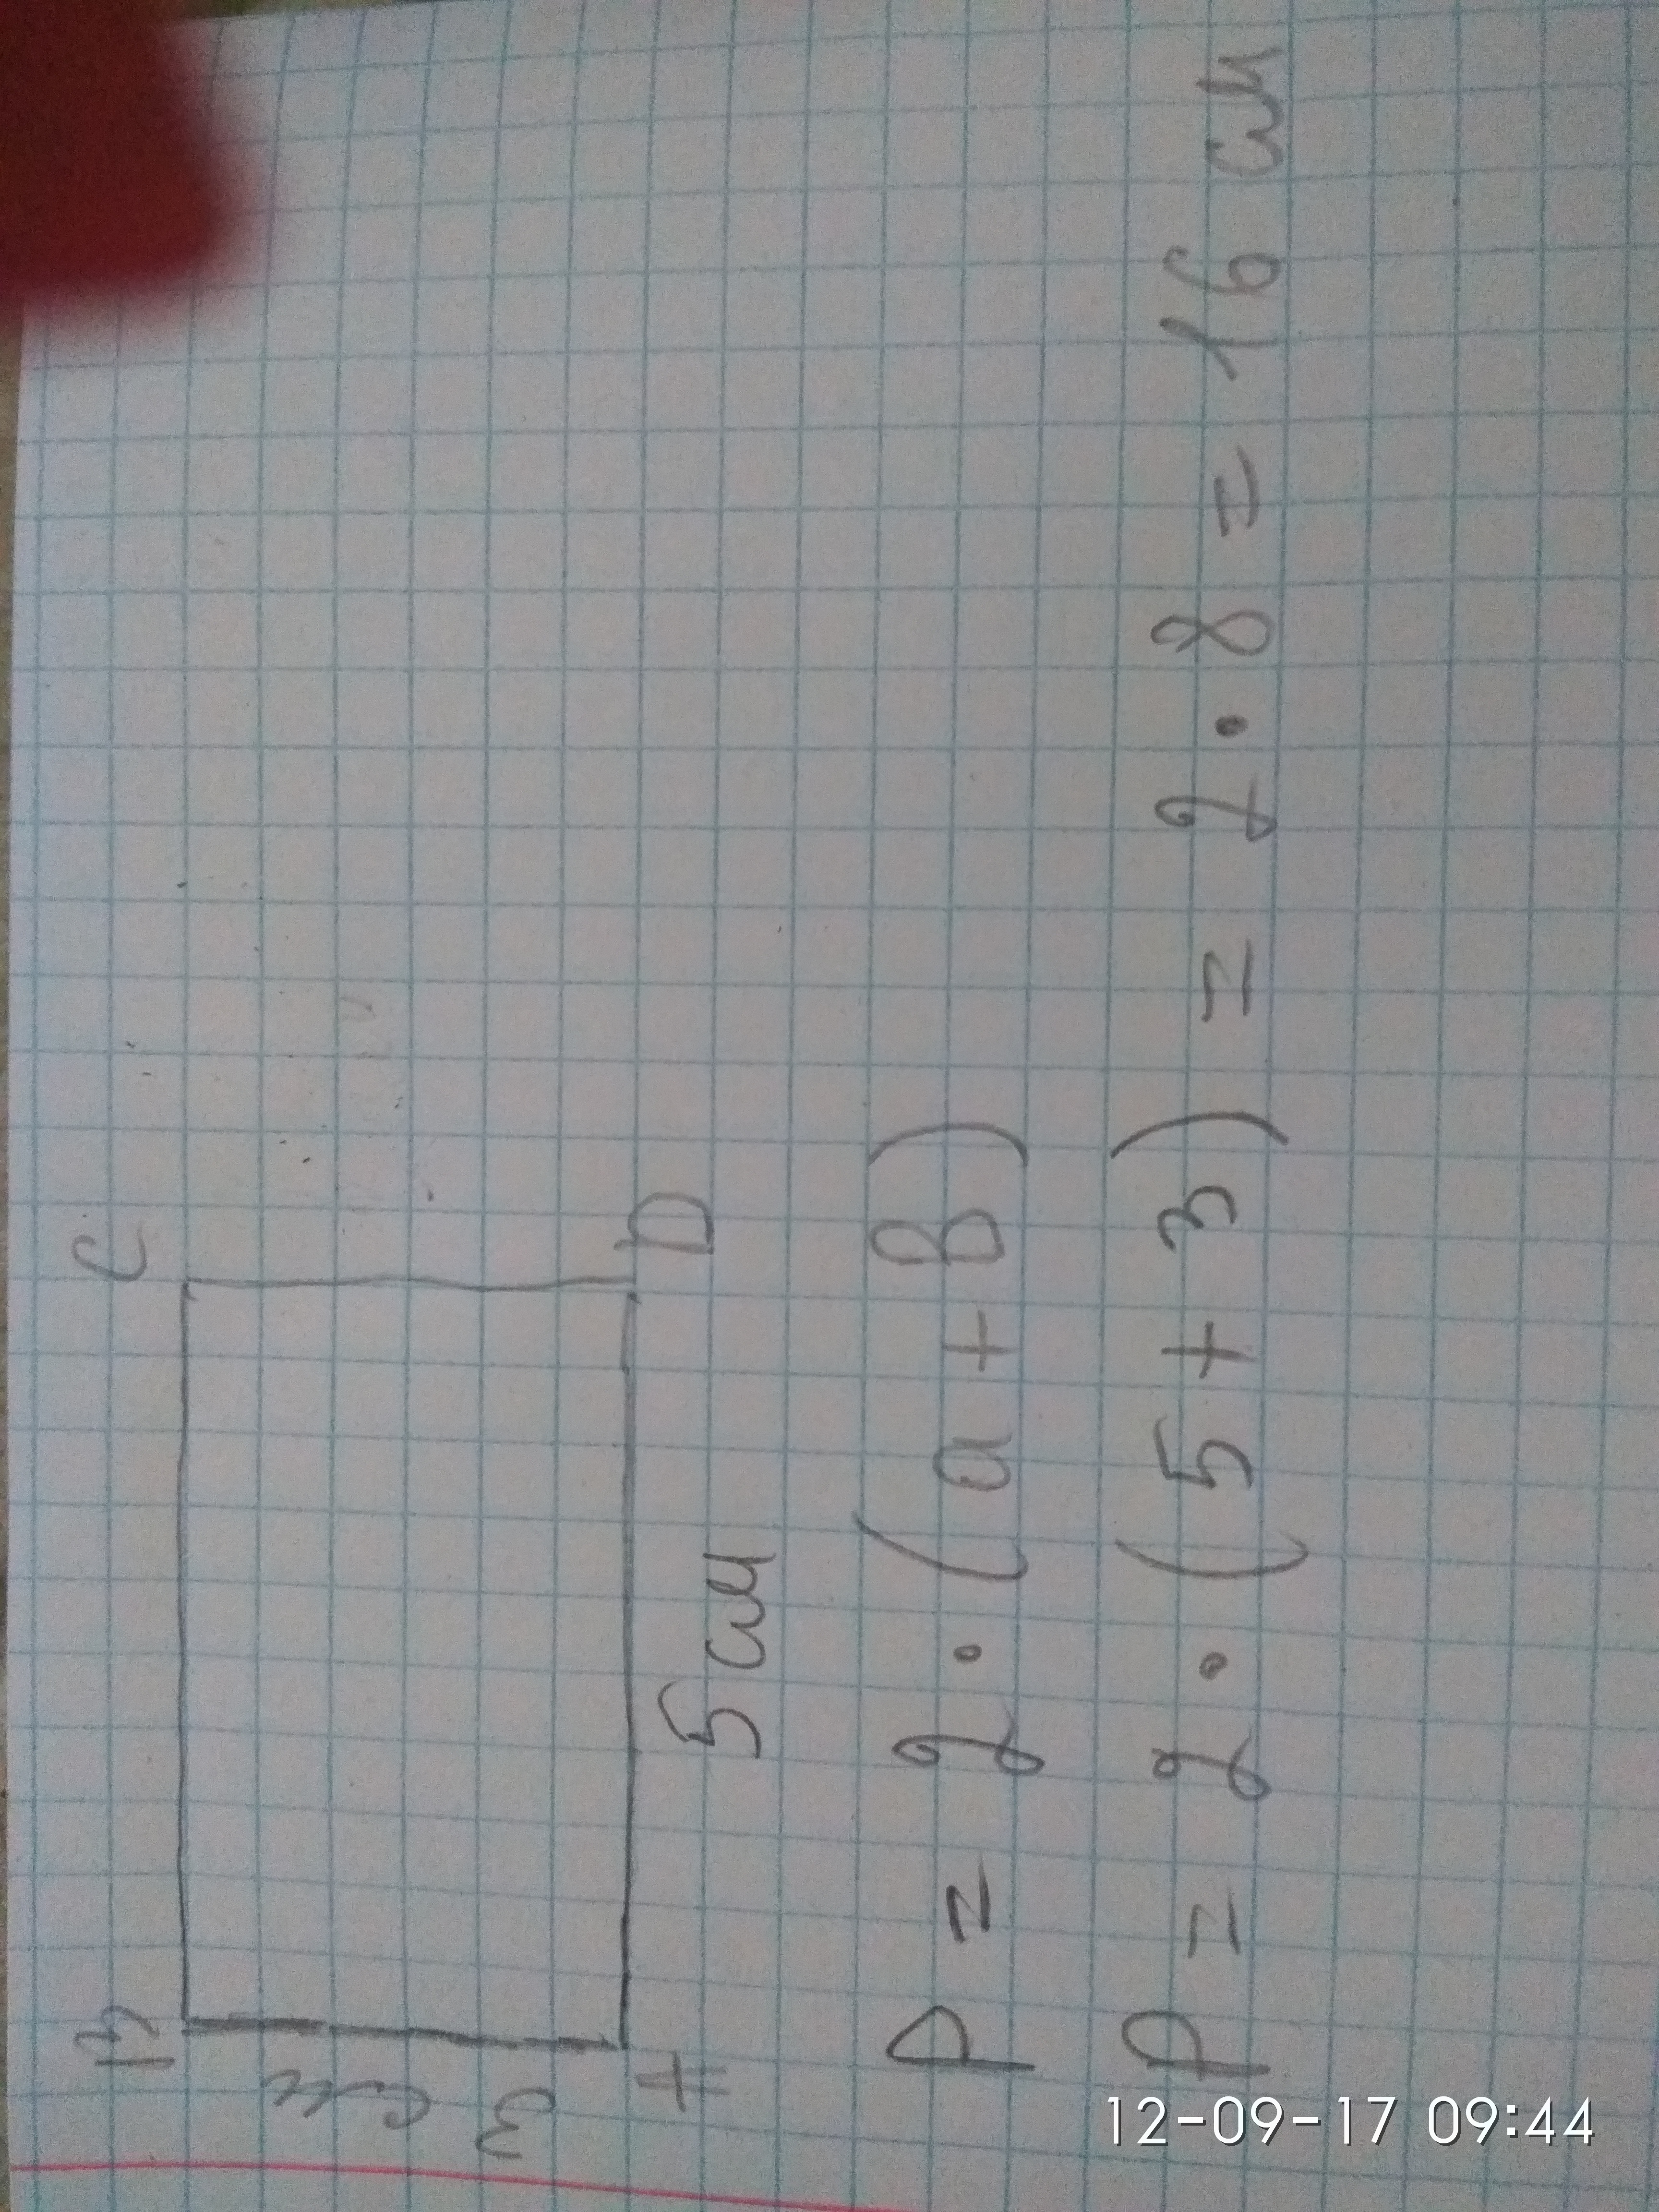 B C
3 см
A D
5 см
P = 2 · (a + B)
P = 2 · (5 + 3) = 2 · 8 = 16 см
12-09-17 09:44